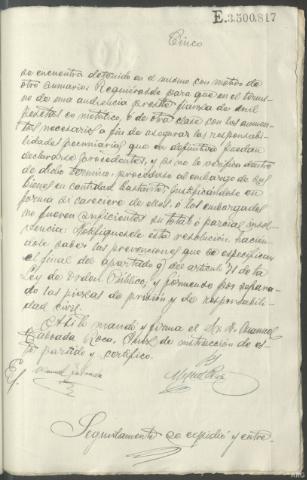 E.3.500.817
Cinco
se encuentra detenido en el mismo con motivo de
otro sumario. Requiérasele para que en el térmi-
no de una audiencia preste fianza de mil
pesetas en metálico, o de otra clase con los aumen-
tos necesarios a fin de asegurar las responsabi-
lidades pecuniarias que en definitiva puedan
declararse procedentes, y si no lo verifica dentro
de dicho término procédase al embargo de sus
bienes en cantidad bastante, justificándose en
forma su carencia de ellos o los embargados
no fueren suficientes su total o parcial insol-
vencia. Notifíquesele esta resolución hacién-
dole saber las prevenciones que se especifican
el final del apartado 9º del artículo 71 de la
Ley de Orden Público, y fórmense por separa-
do las piezas de prisión y de responsabili-
dad civil.
Así lo mandó y firma el Sr. D. Manuel
Taboada Roca, Juez de instrucción de es-
te partido y certifico.
E/ Manuel Taboada
Seguidamente se expidió y entre-